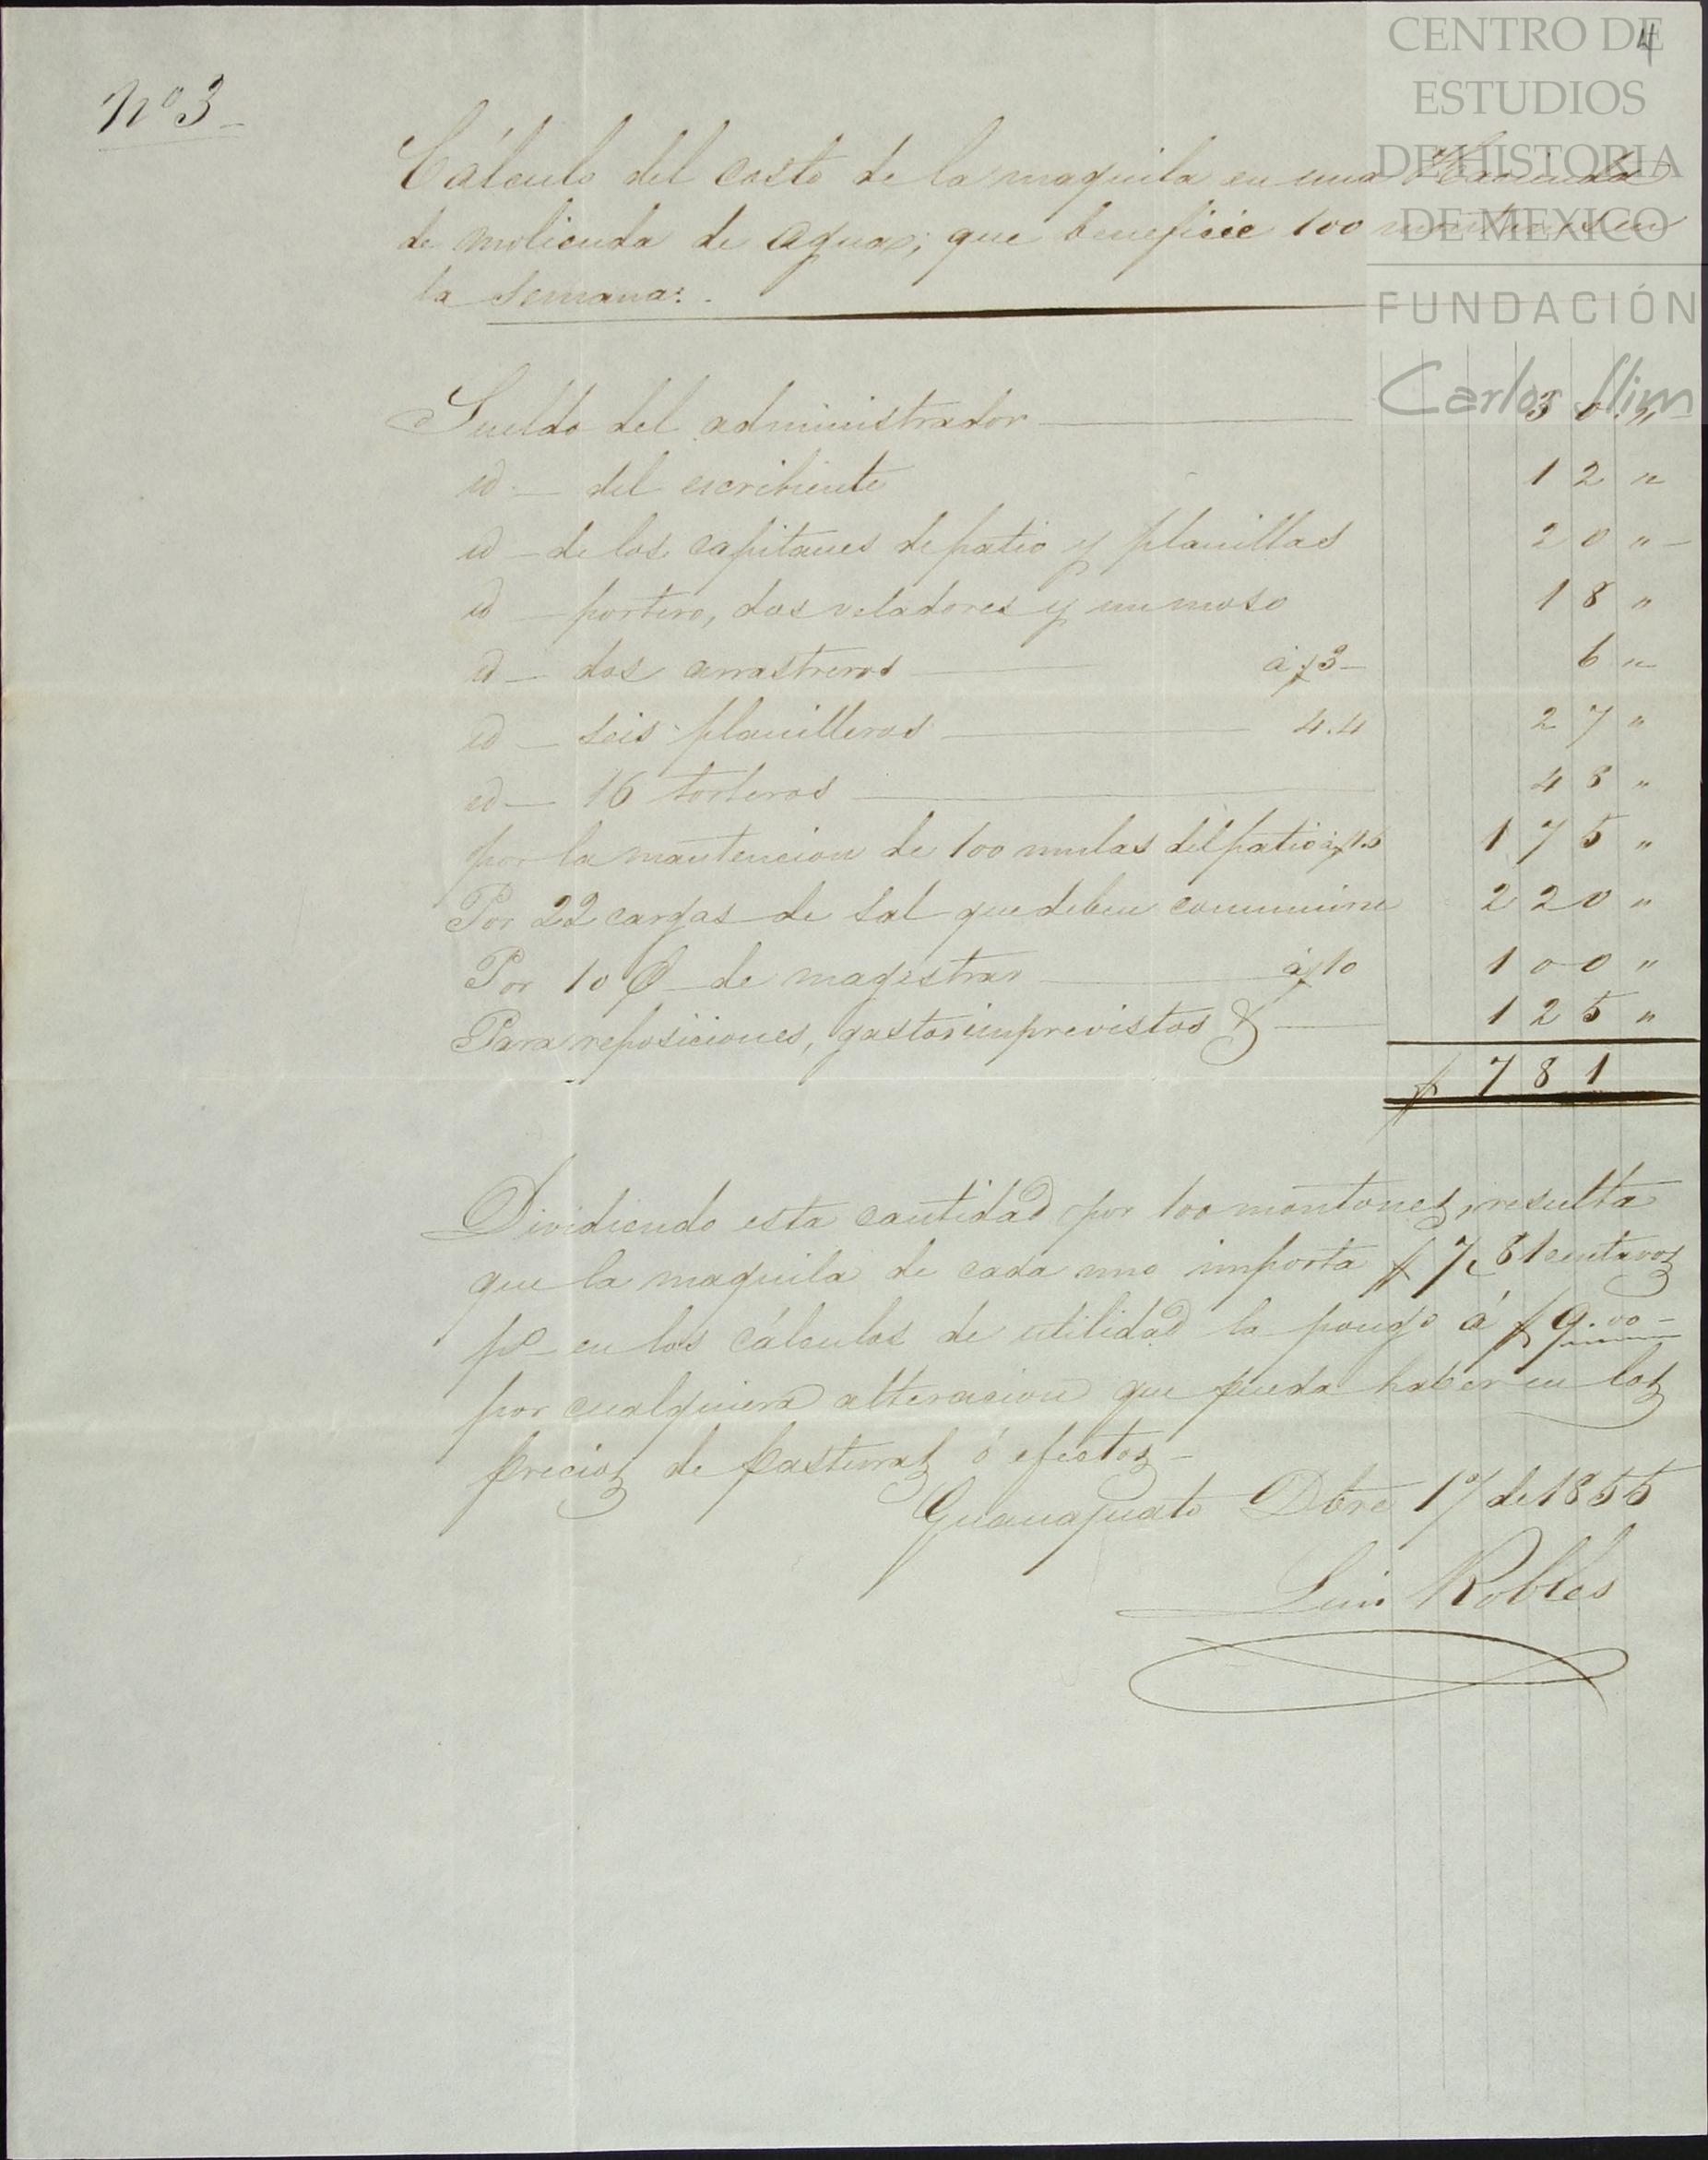 4
CENTRO DE
ESTUDIOS
DE HISTORIA
DE MEXICO
FUNDACIÓN
Carlos Slim
Nº 3
Cálculo del costo de la maquila en una Hacienda
de molienda de agua; que beneficie 100 montones en
la semana:
Sueldo del administrador 30 "
id - del escribiente 12 "
id - de los capitanes de patio y planillas 20 "
id - portero, dos veladores y un moso 18 "
id - dos arrastreros á $3 6 "
id - seis planilleros 4.4 27 "
id - 16 torteros 48 "
por la mantencion de 100 mulas del patio 175 "
Por 22 cargas de sal que deben 220 "
Por 10 de magistral á $10 100 "
Para reposiciones, gastos imprevistos & 125 "
$ 781
Dividiendo esta cantidad por 100 montones, resulta
que la maquila de cada uno importa $ 7, 81 centavos
pº en los cálculos de utilidad la pongo á $ 9.00
por cualquiera alteracion que pueda haber en los
precios de pasturas ó efectos -
Guanajuato Dbre 17 de 1855
Luis Robles